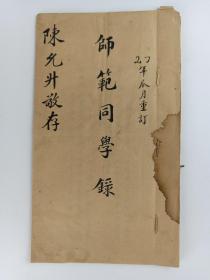 年瓜月重訂
師範同學錄
陳允升敬存